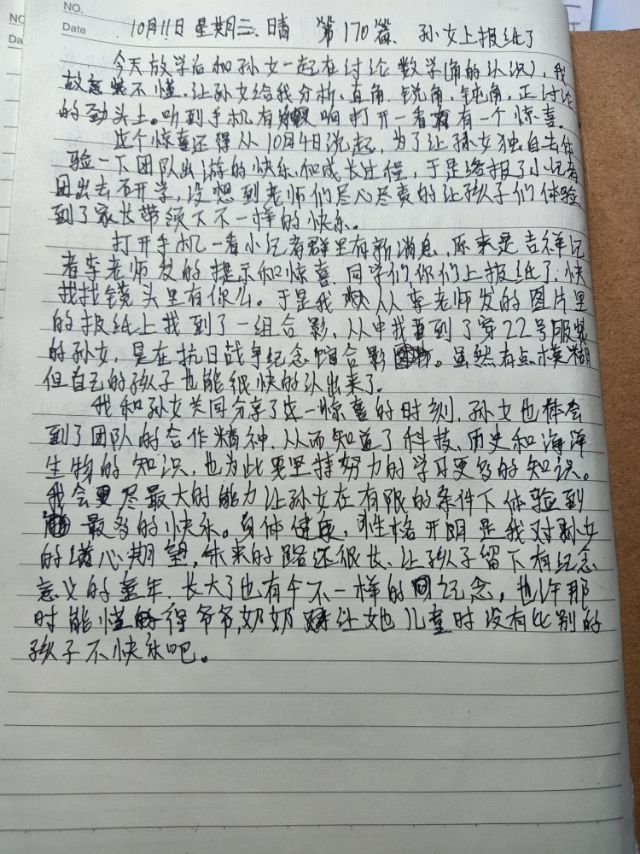 NO.
Date 10月11日 星期三. 晴 第170篇. 孙女上报纸了
今天放学后和孙女一起在讨论数学(角的认识), 我
故意装不懂, 让孙女给我分析, 直角. 锐角. 钝角, 正讨论
的劲头上。听到手机有响打开一看有一个惊喜.
这个惊喜还得从10月4日说起, 为了让孙女独自去体
验一下团队出游的快乐和成长过程, 于是给报了小记者
团出去研学, 没想到老师们尽心尽责的让孩子们体验
到了家长带领下不一样的快乐。
打开手机一看小记者群里有新消息, 原来是吉祥记
者李老师发的提示和惊喜, 同学们你们上报纸了, 快
找找镜头里有你么。于是我从李老师发的图片里
的报纸上找到了一组合影, 从中找到了穿22号服装
的孙女, 是在抗日战争纪念馆合影。虽然有点模糊
但自己的孩子也能很快的认出来了.
我和孙女共同分享了这一惊喜的时刻. 孙女也体会
到了团队的合作精神. 从而知道了科技、历史和海洋
生物的知识. 也为此要坚持努力的学习更多的知识。
我会尽最大的能力让孙女在有限的条件下体验到
最多的快乐。身体健康, 性格开朗是我对孙女
的心期望, 未来的路还很长、让孩子留下有纪念
意义的童年. 长大了也有个不一样的回忆念, 也许那
时能懂得爷爷,奶奶让她儿童时没有比别的
孩子不快乐吧。